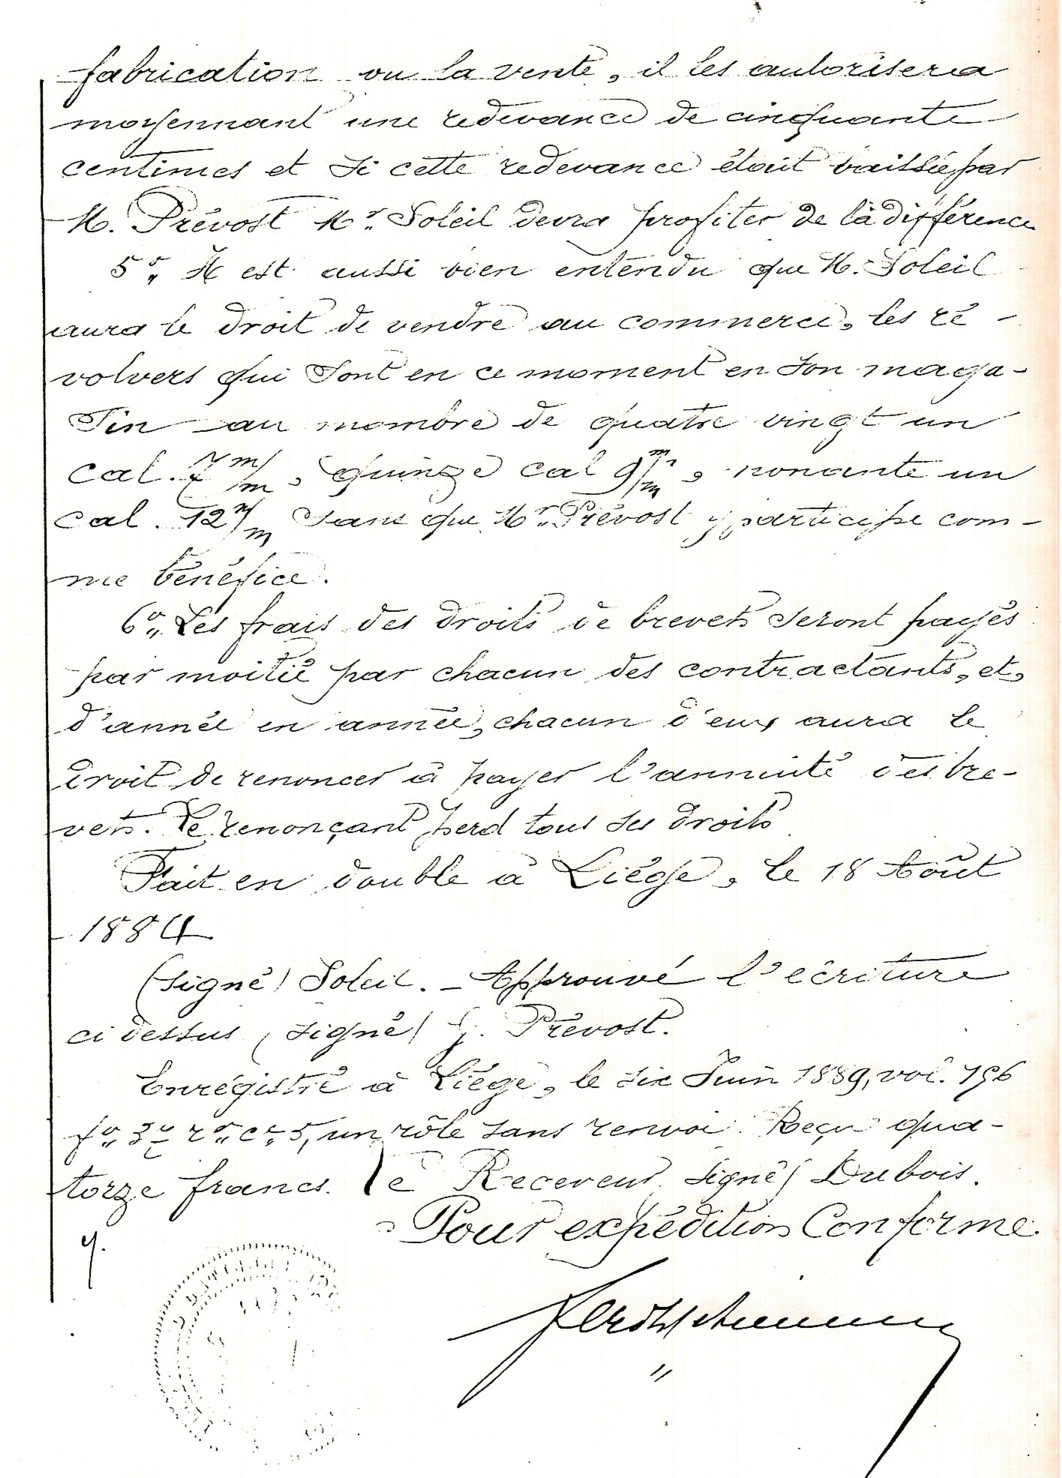 fabrication ou la vente, il les autorisera
moyennant une redevance de cinquante
centimes et si cette redevance était baissée par
M. Prévost Mr. Soleil devra profiter de la différence
5°. Il est aussi bien entendu que M. Soleil
aura le droit de vendre au commerce, les ré-
volvers qui sont en ce moment en son maga-
sin au nombre de quatre vingt un
cal. 7 m/m, quinze cal 9 m/m, nonante un
cal. 12 m/m sans que Mr. Prévost y participe com-
me bénéfice.
6°. Les frais des droits de brevets seront payés
par moitié par chacun des contractants, et,
d'année en année, chacun d'eux aura le
droit de renoncer à payer l'annuité des bre-
vets. Le renonçant perd tous ses droits
Fait en double à Liége, le 18 Août
1884
(signé) Soleil. - Approuvé l'écriture
ci dessus (signé) J. Prévost.
Enrégistré à Liége, le six Juin 1889, vol. 196
f°. 3, r°. c°. 5, un rôle sans renvoi. Reçu qua-
torze francs. Le Receveur, signé) Dubois.
Pour expédition Conforme.